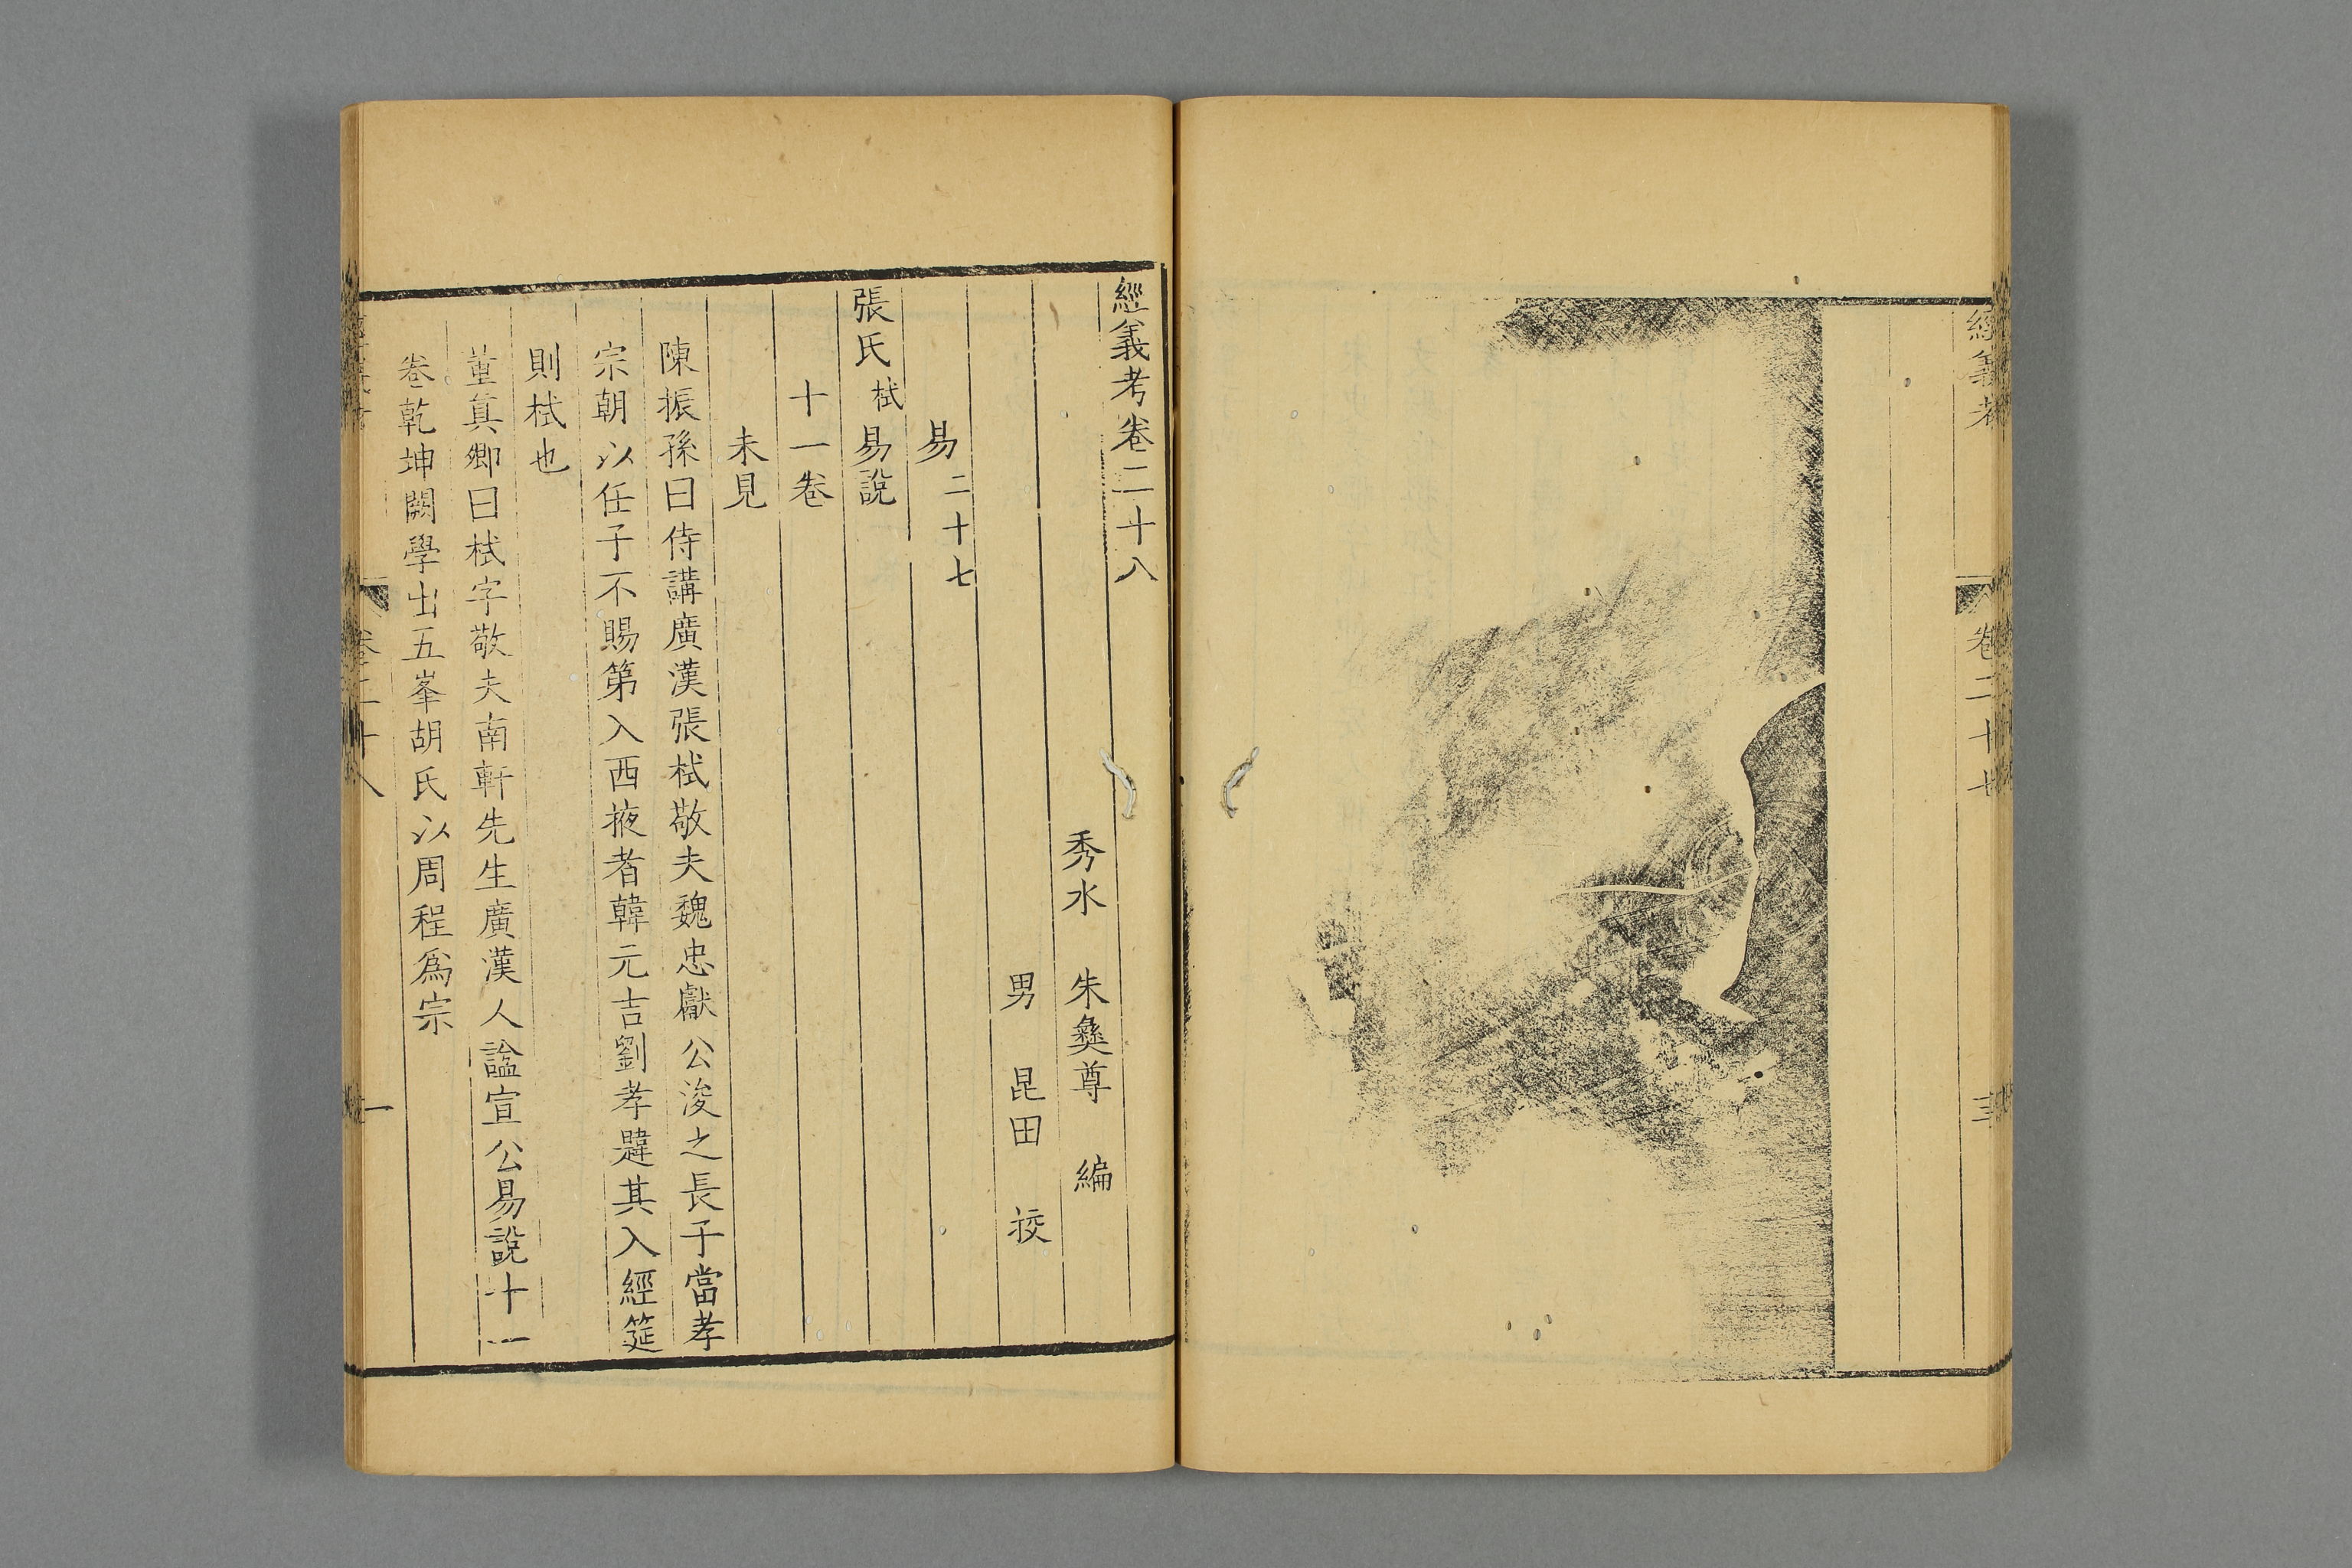 經義考
卷二十七
經義考卷二十八
秀水 朱彝尊 編
男 昆田 挍
易二十七
張氏栻易說
十一卷
未見
陳振孫曰侍講廣漢張栻敬夫魏忠獻公浚之長子當孝
宗朝以任子不賜第入西掖者韓元吉劉孝韙其入經筵
則栻也
董真卿曰栻字敬夫南軒先生廣漢人諡宣公易說十一
卷乾坤闕學出五峯胡氏以周程爲宗
卷二十八
一